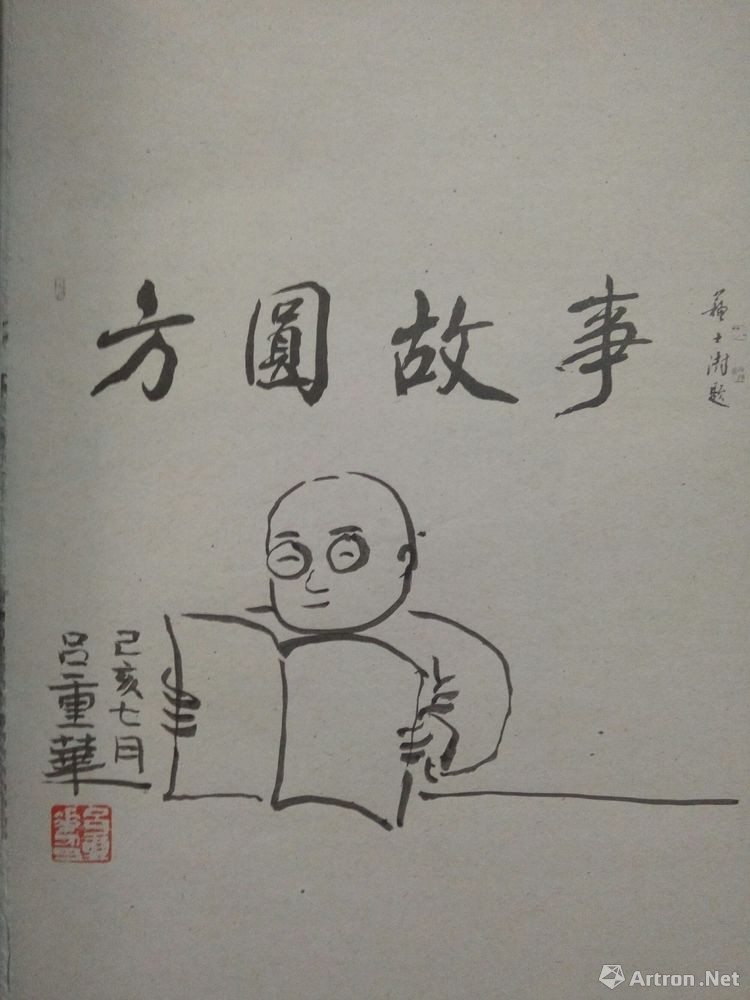 方圓故事
蘇士澍題
己亥七月
呂重華
Artron.Net